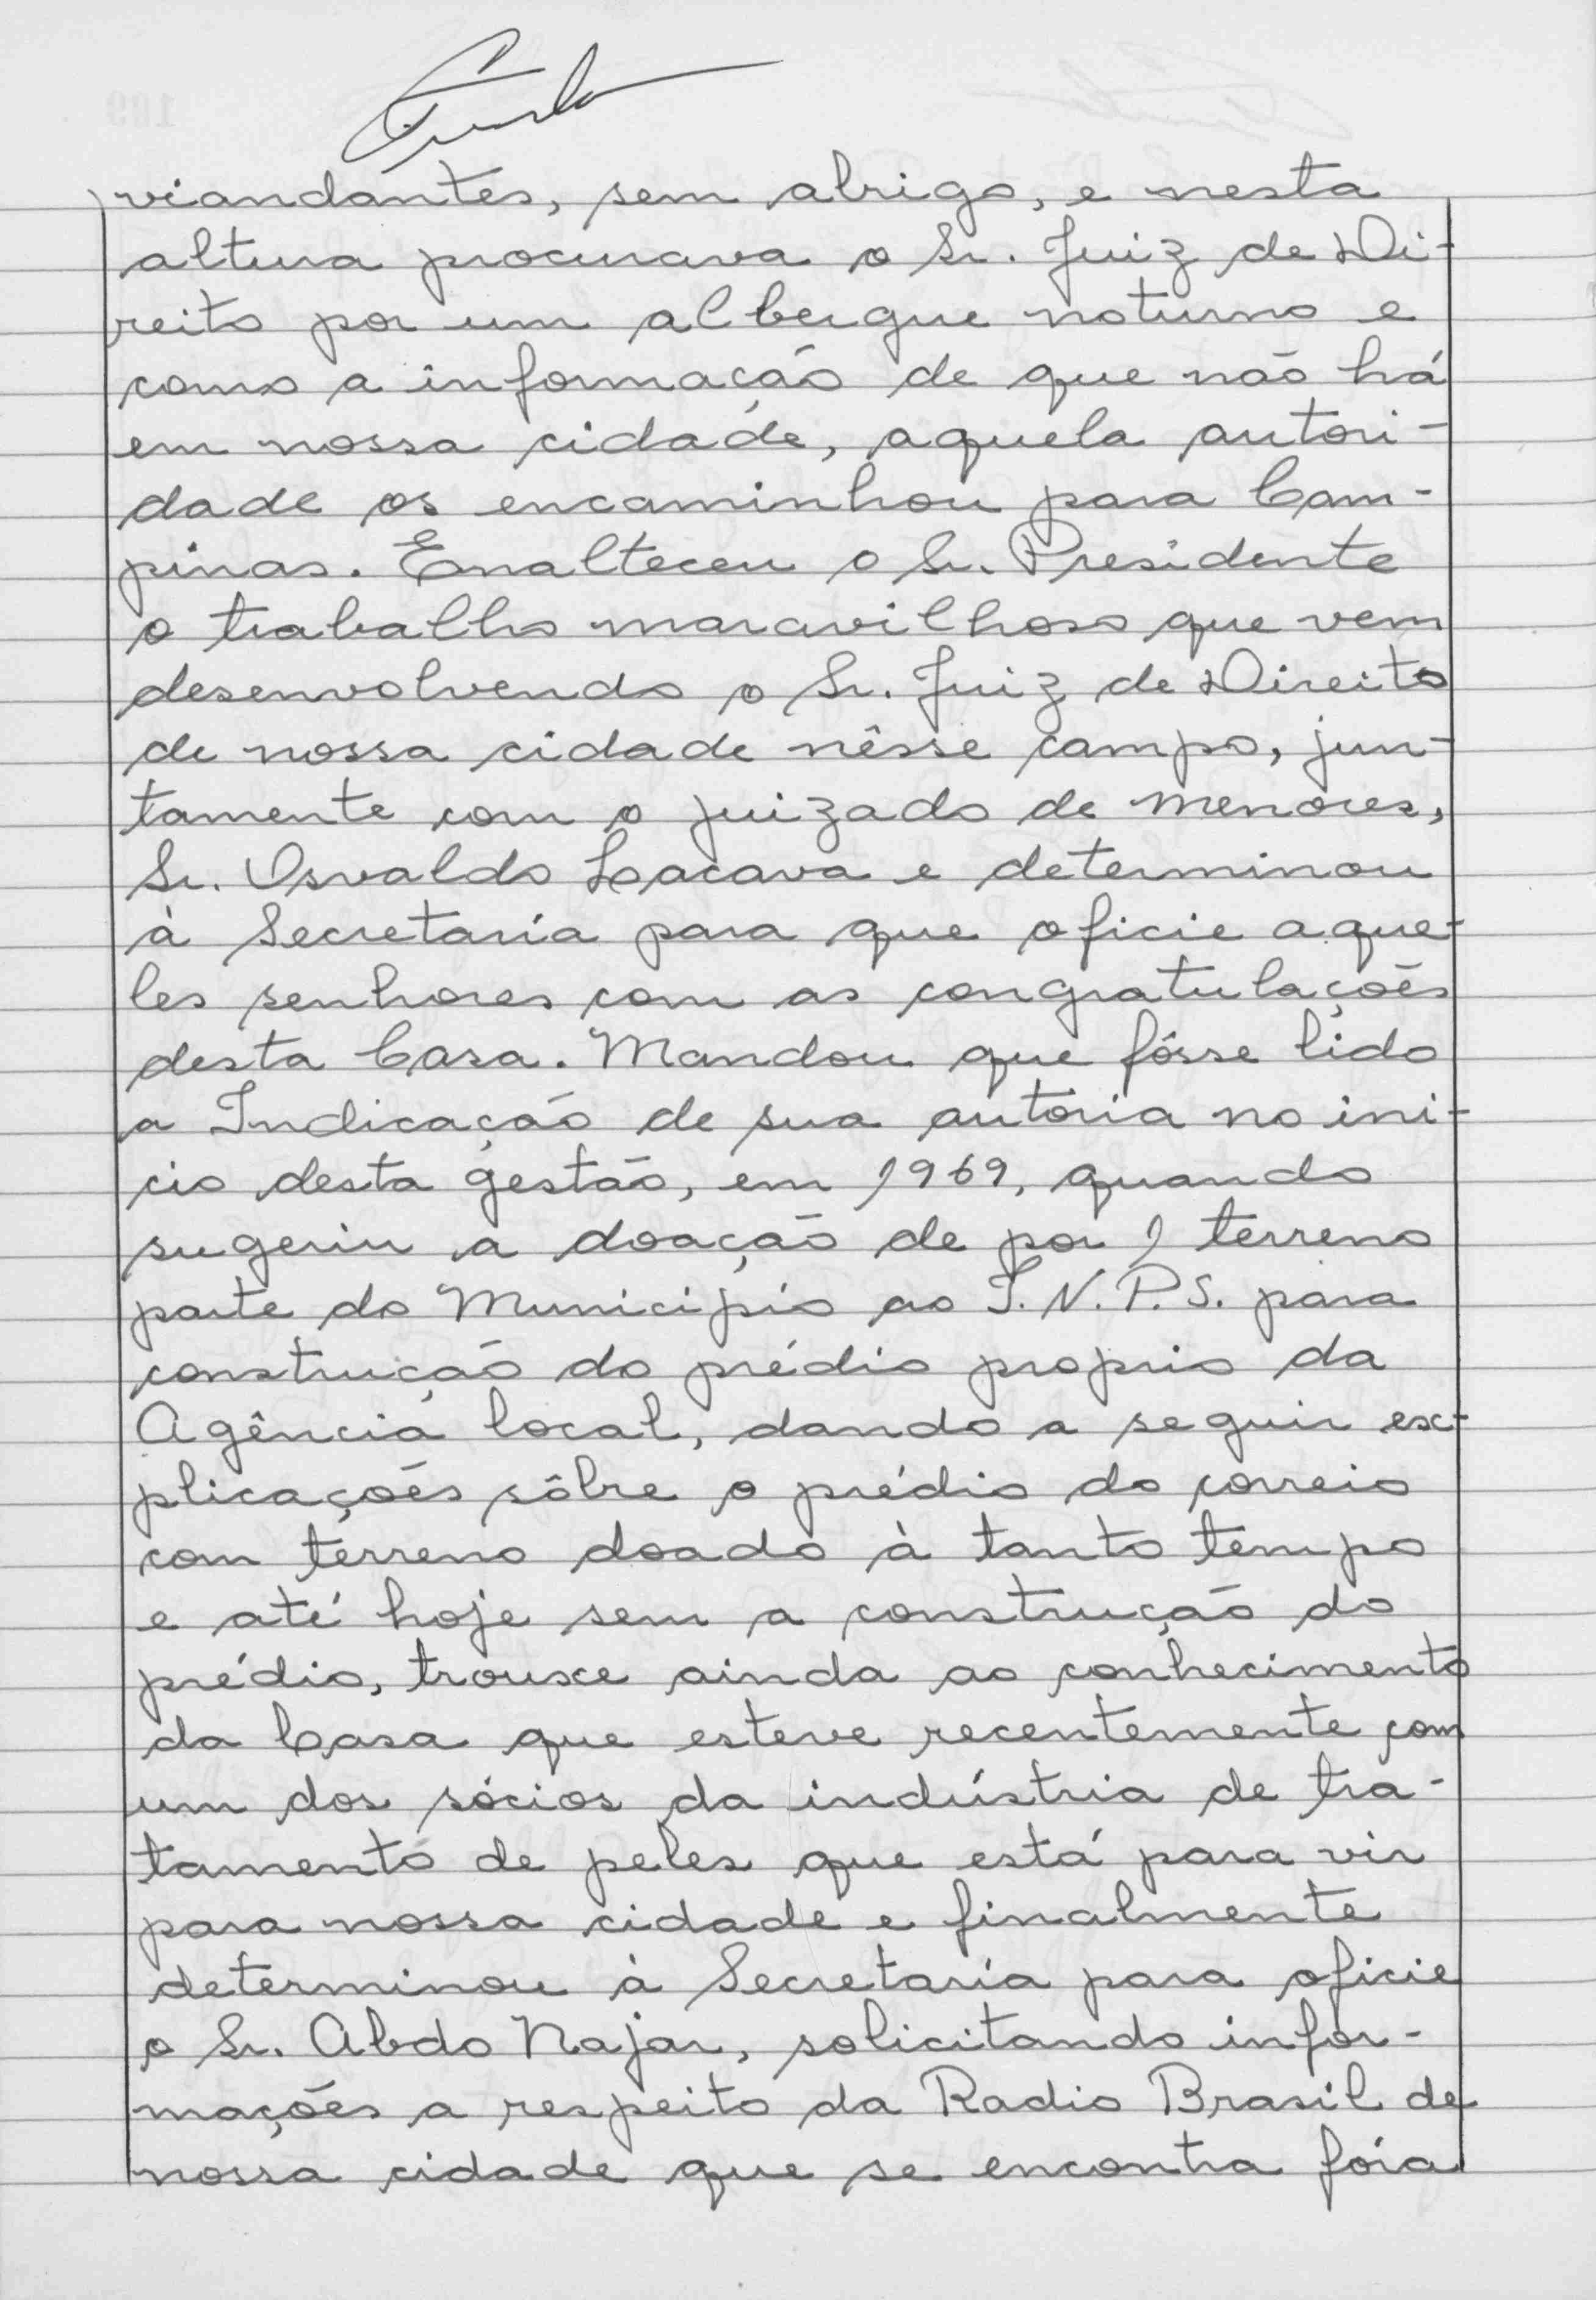 viandantes, sem abrigo, e nesta
altura procurava o Sr. Juiz de Di-
reito por um albergue noturno e
como a informação de que não há
em nossa cidade, aquela autori-
dade os encaminhou para Cam-
pinas. Enalteceu o Sr. Presidente
o trabalho maravilhoso que vem
desenvolvendo o Sr. Juiz de Direito
de nossa cidade nêsse campo, jun-
tamente com o juizado de menores,
Sr. Osvaldo Lacava e determinou
à Secretaría para que oficie aque-
les senhores com as congratulações
desta Casa. Mandou que fôsse lido
a Indicação de sua autoria no ini-
cio desta gestão, em 1969, quando
sugeriu a doação de por 1 terreno
parte do Municipio ao I.N.P.S. para
construição do prédio proprio da
Agência local, dando a seguir ex-
plicações sôbre o prédio do correio
com terreno doado à tanto tempo
e até hoje sem a construção do
prédio, trouxe ainda ao conhecimento
da Casa que esteve recentemente com
um dos sócios da indústria de tra-
tamento de peles que está para vir
para nossa cidade e finalmente
determinou à Secretaría para oficie
o Sr. Abdo Najar, solicitando infor-
mações a respeito da Radio Brasil de
nossa cidade que se encontra fóra